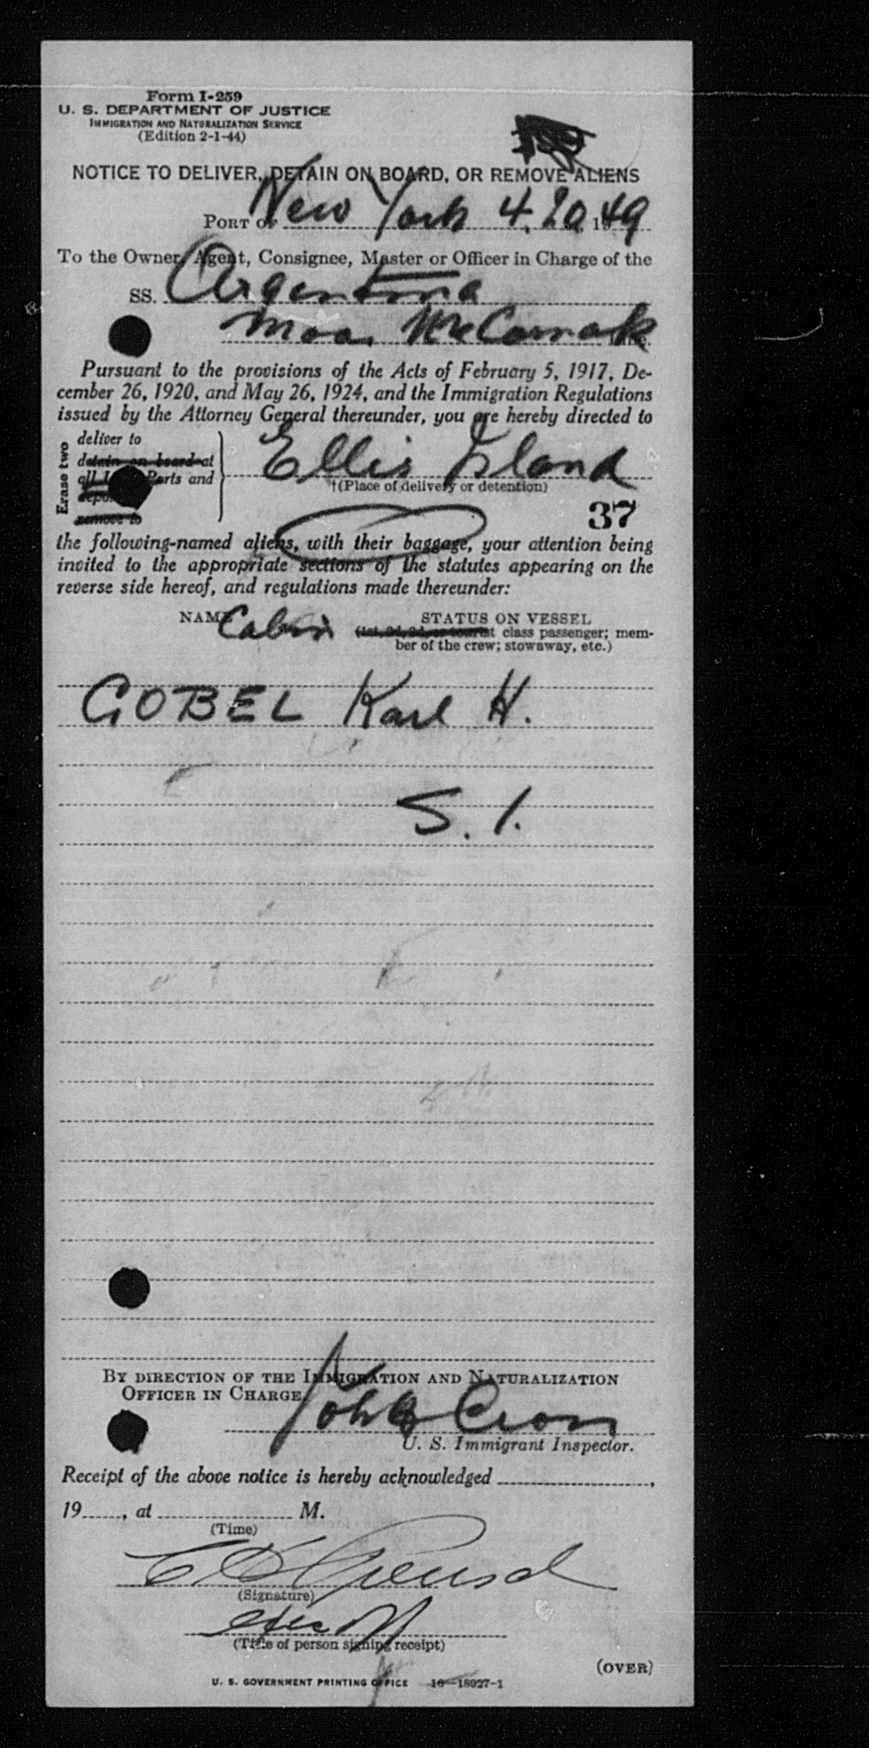 Form I-259
U. S. DEPARTMENT OF JUSTICE
IMMIGRATION AND NATURALIZATION SERVICE
(Edition 2-1-44)
NOTICE TO DELIVER, DETAIN ON BOARD, OR REMOVE ALIENS
PORT OF New York 4.20 1949
To the Owner, Agent, Consignee, Master or Officer in Charge of the
SS. Argentina
Moo. McCormack
Pursuant to the provisions of the Acts of February 5, 1917, De-
cember 26, 1920, and May 26, 1924, and the Immigration Regulations
issued by the Attorney General thereunder, you are hereby directed to
Erase two
deliver to
detain on board at
all Ports and
remove to
Ellis Island
†(Place of delivery or detention)
37
the following-named aliens, with their baggage, your attention being
invited to the appropriate sections of the statutes appearing on the
reverse side hereof, and regulations made thereunder:
NAME Cabin STATUS ON VESSEL
(1st, 2d, 3d, or tourist class passenger; mem-
ber of the crew; stowaway, etc.)
GOBEL Karl H.
S. I.
BY DIRECTION OF THE IMMIGRATION AND NATURALIZATION
OFFICER IN CHARGE.
U. S. Immigrant Inspector.
Receipt of the above notice is hereby acknowledged ,
19 , at M.
(Time)
(Signature)
(Title of person signing receipt)
(OVER)
U. S. GOVERNMENT PRINTING OFFICE 16—18027-1